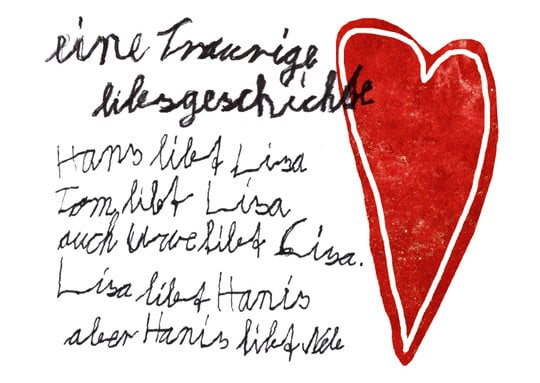 eine Traurige
libesgeschichte
Hans libt Lisa
Tom libt Lisa
auch Uwe libt Lisa.
Lisa libt Hanis
aber Hanis libt Nele